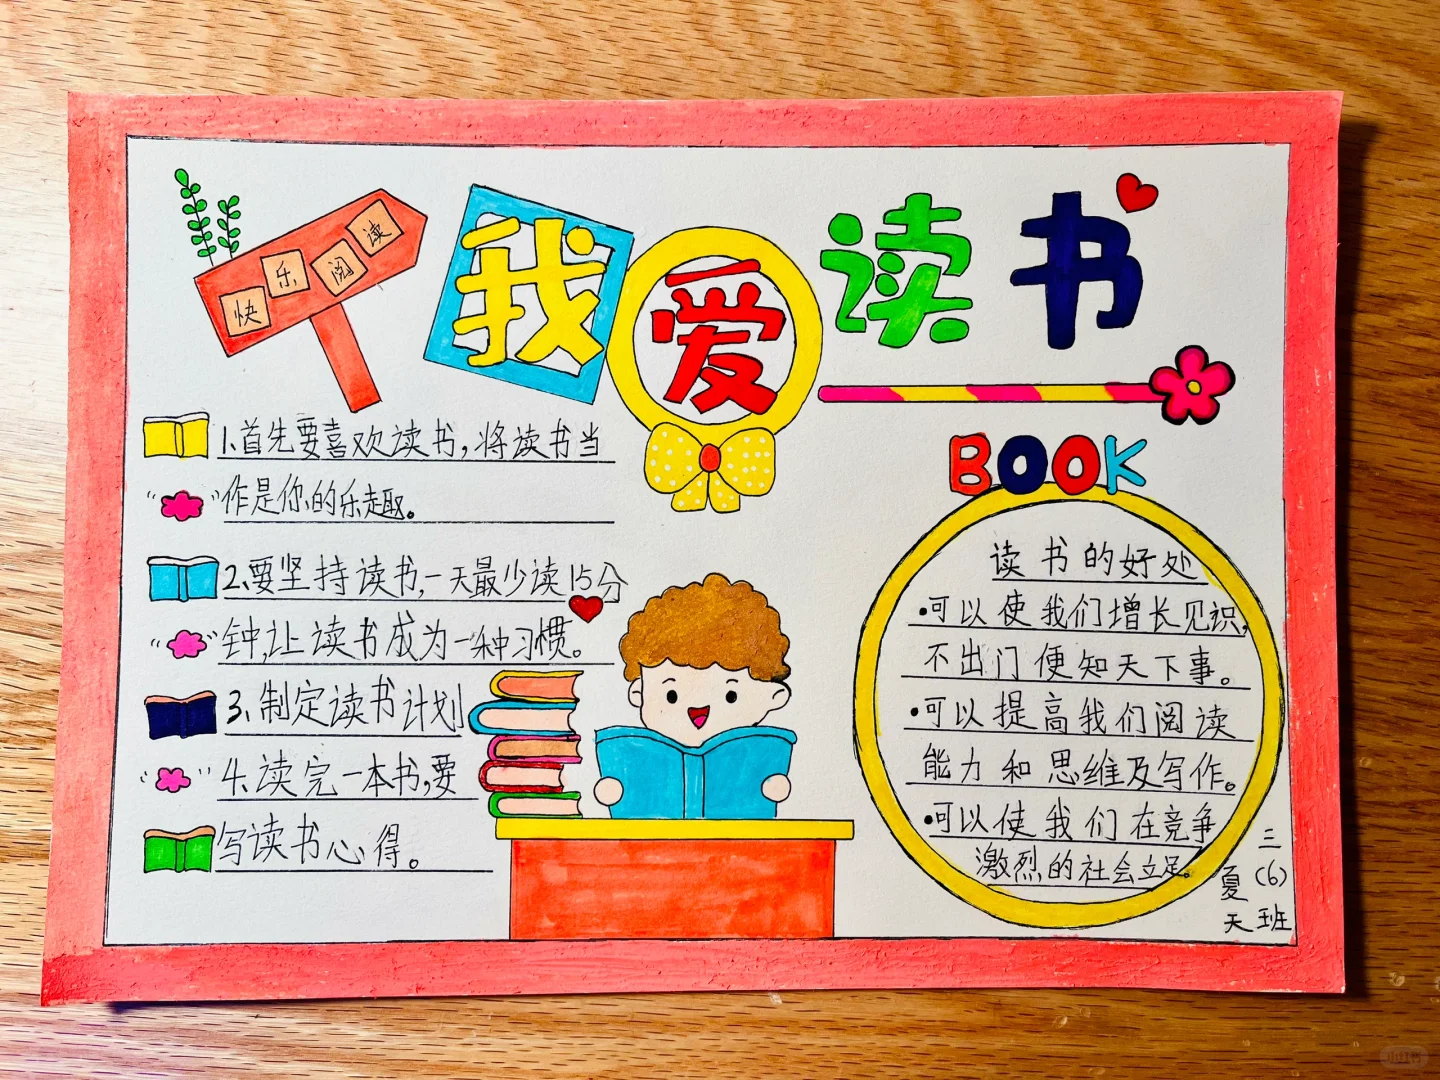 快乐阅读
我爱读书
1.首先要喜欢读书,将读书当
作是你的乐趣。
2、要坚持读书,一天最少读15分
钟,让读书成为一种习惯。
3、制定读书计划
4.读完一本书,要
写读书心得。
BOOK
读书的好处
•可以使我们增长见识,
不出门便知天下事。
•可以提高我们阅读
能力和思维及写作。
•可以使我们在竞争
激烈的社会立足。
三(6)班
夏天
小红书